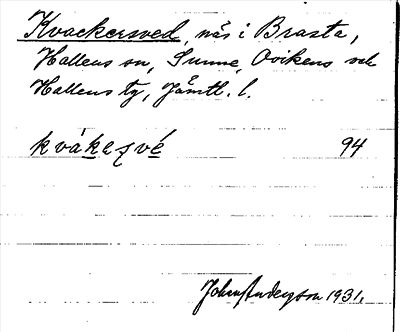 Kvackersved, näs i Brasta,
Hallens sn, Sunne, Ovikens och
Hallens tg, Jämtl. l.
kvákezvé 94
John Anderzon 1931.